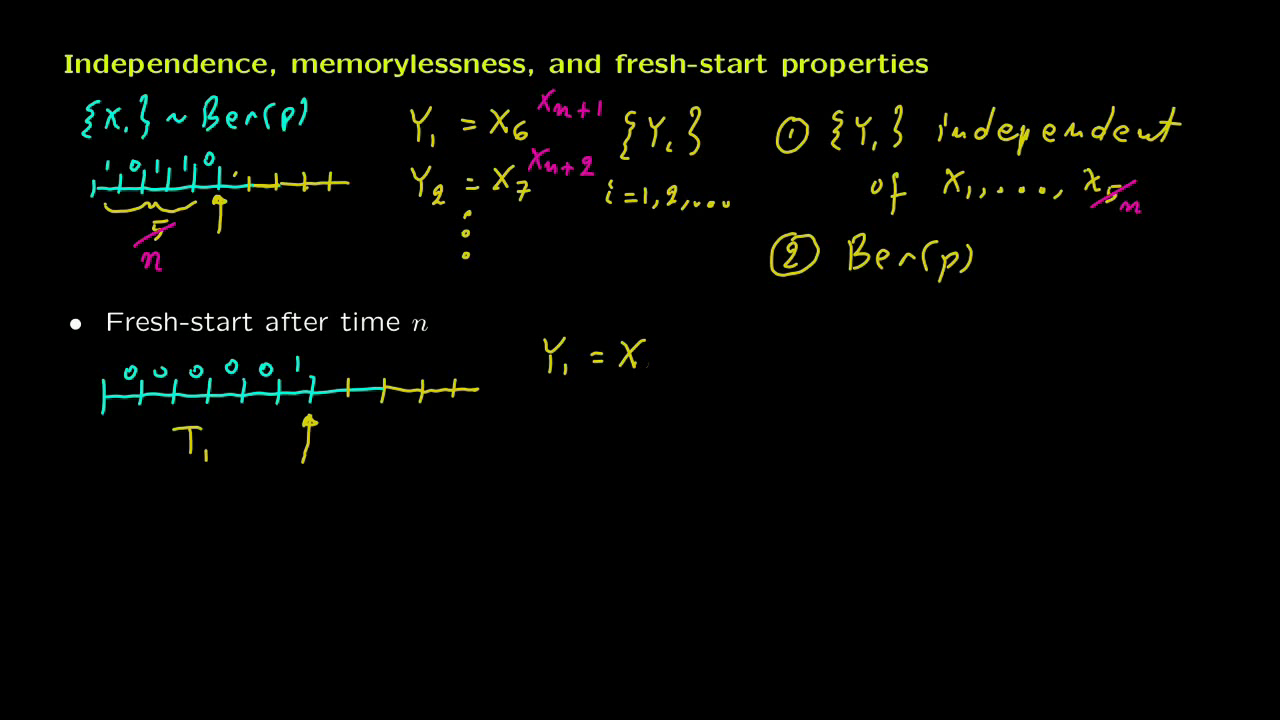 Independence, memorylessness, and fresh-start properties
{Xᵢ} ~ Ber(p)
1 0 1 1 0
5
n
Y₁ = X₆ Xₙ₊₁
Y₂ = X₇ Xₙ₊₂
{Yᵢ}
i = 1, 2, ...
① {Yᵢ} independent
of X₁, ..., X₅ n
② Ber(p)
• Fresh-start after time n
0 0 0 0 0 1
T₁
Y₁ = X